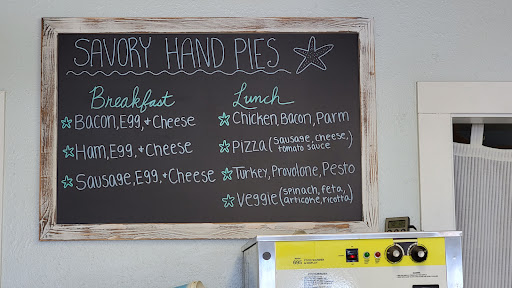 SAVORY HAND PIES
Breakfast
Bacon, Egg, + Cheese
Ham, Egg, + Cheese
Sausage, Egg, + Cheese
Lunch
Chicken, Bacon, Parm
Pizza (sausage, cheese,
tomato sauce)
Turkey, Provolone, Pesto
Veggie (spinach, feta,
articone, ricotta)